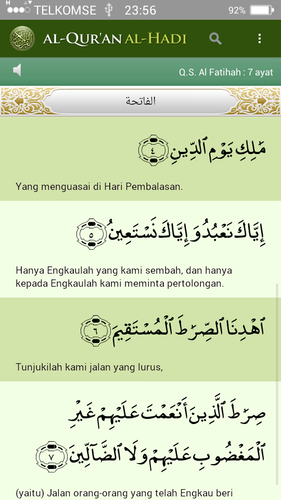 TELKOMSE 23:56 92%
AL-QUR'AN AL-HADI
Q.S. Al Fatihah : 7 ayat
الفاتحة
مَٰلِكِ يَوْمِ ٱلدِّينِ ٤
Yang menguasai di Hari Pembalasan.
إِيَّاكَ نَعْبُدُ وَإِيَّاكَ نَسْتَعِينُ ٥
Hanya Engkaulah yang kami sembah, dan hanya
kepada Engkaulah kami meminta pertolongan.
ٱهْدِنَا ٱلصِّرَٰطَ ٱلْمُسْتَقِيمَ ٦
Tunjukilah kami jalan yang lurus,
صِرَٰطَ ٱلَّذِينَ أَنْعَمْتَ عَلَيْهِمْ غَيْرِ
ٱلْمَغْضُوبِ عَلَيْهِمْ وَلَا ٱلضَّآلِّينَ ٧
(yaitu) Jalan orang-orang yang telah Engkau beri